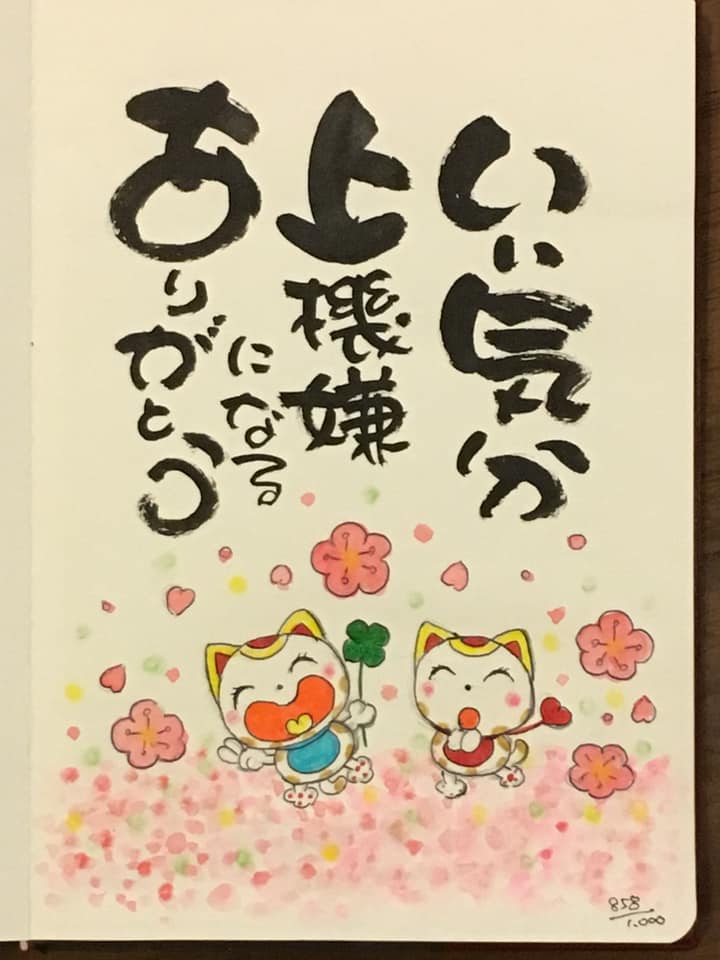 いい気分
上機嫌
になる
ありがとう
858/1.000